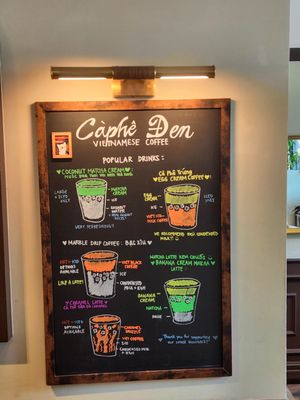 Càphê Đen
VIETNAMESE COFFEE
POPULAR DRINKS:
♥ COCONUT MATCHA CREAM ♥
LARGE + ICED ONLY
MATCHA CREAM
ICE
COCONUT WATER
Cà Phê Trứng
♥ EGG CREAM COFFEE ♥
EGG CREAM
ICE
VIET ICED MILK COFFEE
ICED ONLY
WE RECOMMEND W/ CONDENSED MILK!! :)
♥ MARBLE DRIP COFFEE: BẠC XỈU ♥
HOT + ICED OPTIONS AVAILABLE
LIKE A LATTE!
VIET BLACK COFFEE
ICE
CONDENSED MILK + H&H
♥ CARAMEL LATTE ♥
HOT + ICED OPTIONS AVAILABLE
CARAMEL DRIZZLE
VIET COFFEE
ICE
CONDENSED MILK + H&H
MATCHA LATTE KEM CHUỐI
♥ BANANA CREAM MATCHA LATTE ♥
BANANA CREAM
MATCHA
ICE
MILK
♥ Thank you for supporting our small business!! ♥